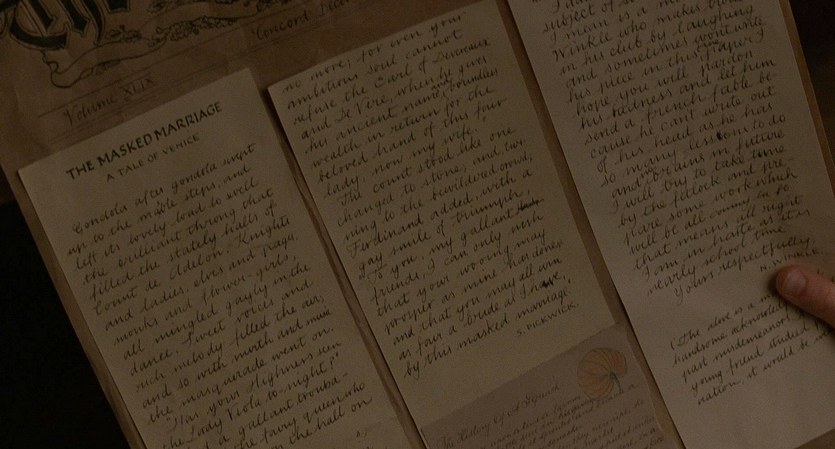 Volume XLIX
Concord,
THE MASKED MARRIAGE
A TALE OF VENICE
Gondola after gondola swept
up to the marble steps, and
left its lovely load to swell
the brilliant throng that
filled the stately halls of
Count de Adelon. Knights
and ladies, elves and pages,
monks and flower-girls,
all mingled gayly in the
dance. Sweet voices and
rich melody filled the air;
and so with mirth and music
the masquerade went on.
"Has your Highness seen
the Lady Viola to-night?"
a gallant trouba-
the fairy queen who
the hall on
no more; for even your
ambitious soul cannot
refuse the Earl of Devereux
and De Vere, when he gives
his ancient name and boundless
wealth in return for the
beloved hand of this fair
lady, now my wife."
The count stood like one
changed to stone; and tur-
ning to the bewildered crowd,
Ferdinand added, with a
gay smile of triumph,
"To you, my gallant
friends, I can only wish
that your wooing may
prosper as mine has done
and that you may all win
as fair a bride as I have,
by this masked marriage."
S. PICKWICK.
The History of a Squash
subject of
I mean is a man
Winkle who makes
in his club by laughing
and sometimes wont write
his piece in this paper I
hope you will pardon
his badness and let him
send a french fable be-
cause he can't write out
of his head as he has
so many lessons to do
and brains in future
I will try to take time
by the fetlock and pre-
pare some work which
will be all commy la fo
that means all right
I am in haste as it is
nearly school time
Yours respectfully,
(The above is a
handsome acknowledg
past misdemeanors.
young friend studied
ation, it would be